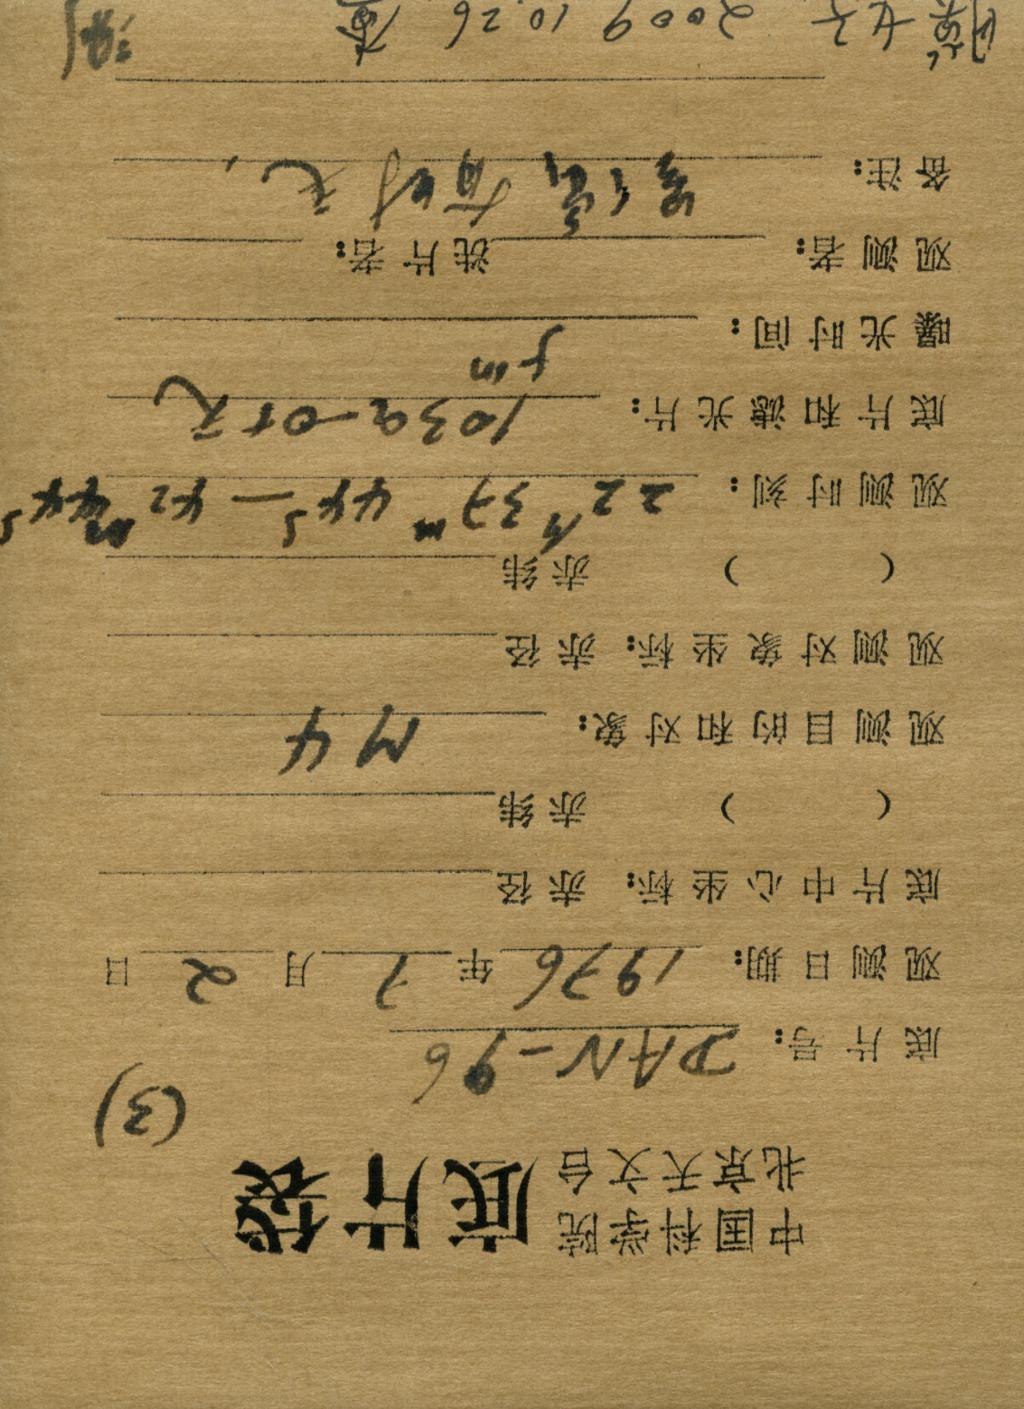 中国科学院
北京天文台
底片袋
(3)
底片号: DAN-96
观测日期: 1976年7月2日
底片中心坐标: 赤径
( ) 赤纬
观测目的和对象: M4
观测对象坐标: 赤径
( ) 赤纬
观测时刻: 22h37m44s—42m44s
底片和滤光片: 103a-O+无
曝光时间: 5m
观测者: 洗片者:
备注: 有时无,
2009.10.26 查